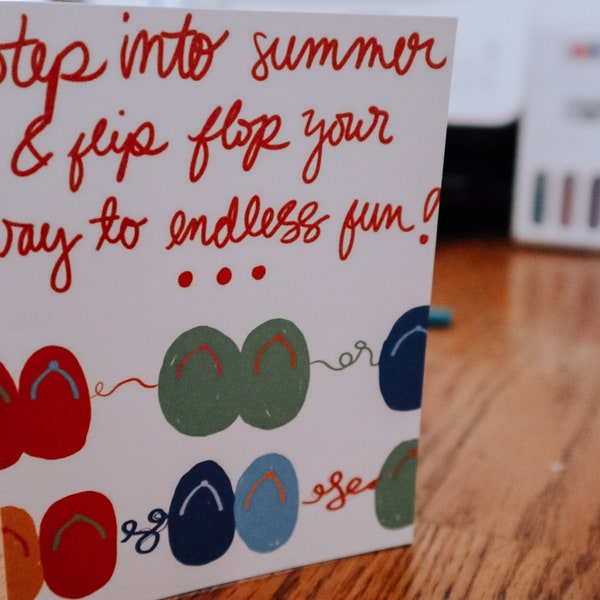 step into summer
& flip flop your
way to endless fun!
...